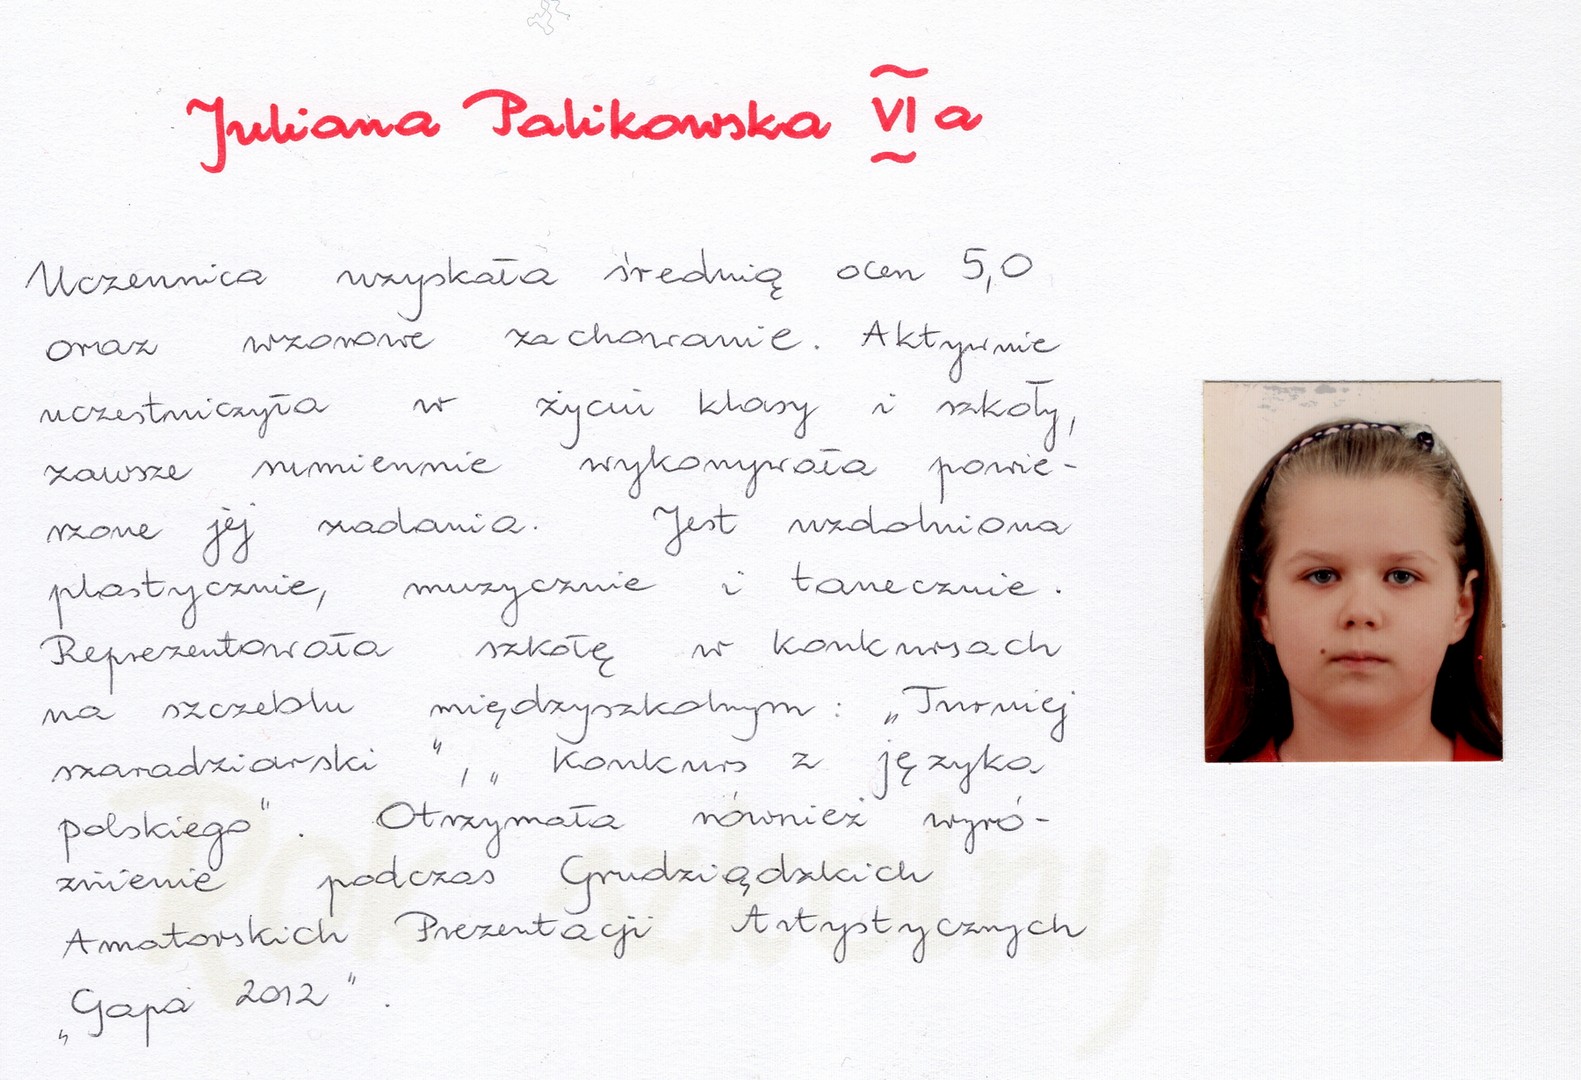 Juliana Palikowska VI a
Uczennica uzyskała średnią ocen 5,0
oraz wzorowe zachowanie. Aktywnie
uczestniczyła w życiu klasy i szkoły,
zawsze sumiennie wykonywała powie-
rzone jej zadania. Jest uzdolniona
plastycznie, muzycznie i tanecznie.
Reprezentowała szkołę w konkursach
na szczeblu międzyszkolnym: „Turniej
szaradziarski", „Konkurs z języka
polskiego". Otrzymała również wyró-
żnienie podczas Grudziądzkich
Amatorskich Prezentacji Artystycznych
„Gapa 2012".
Rok szkolny